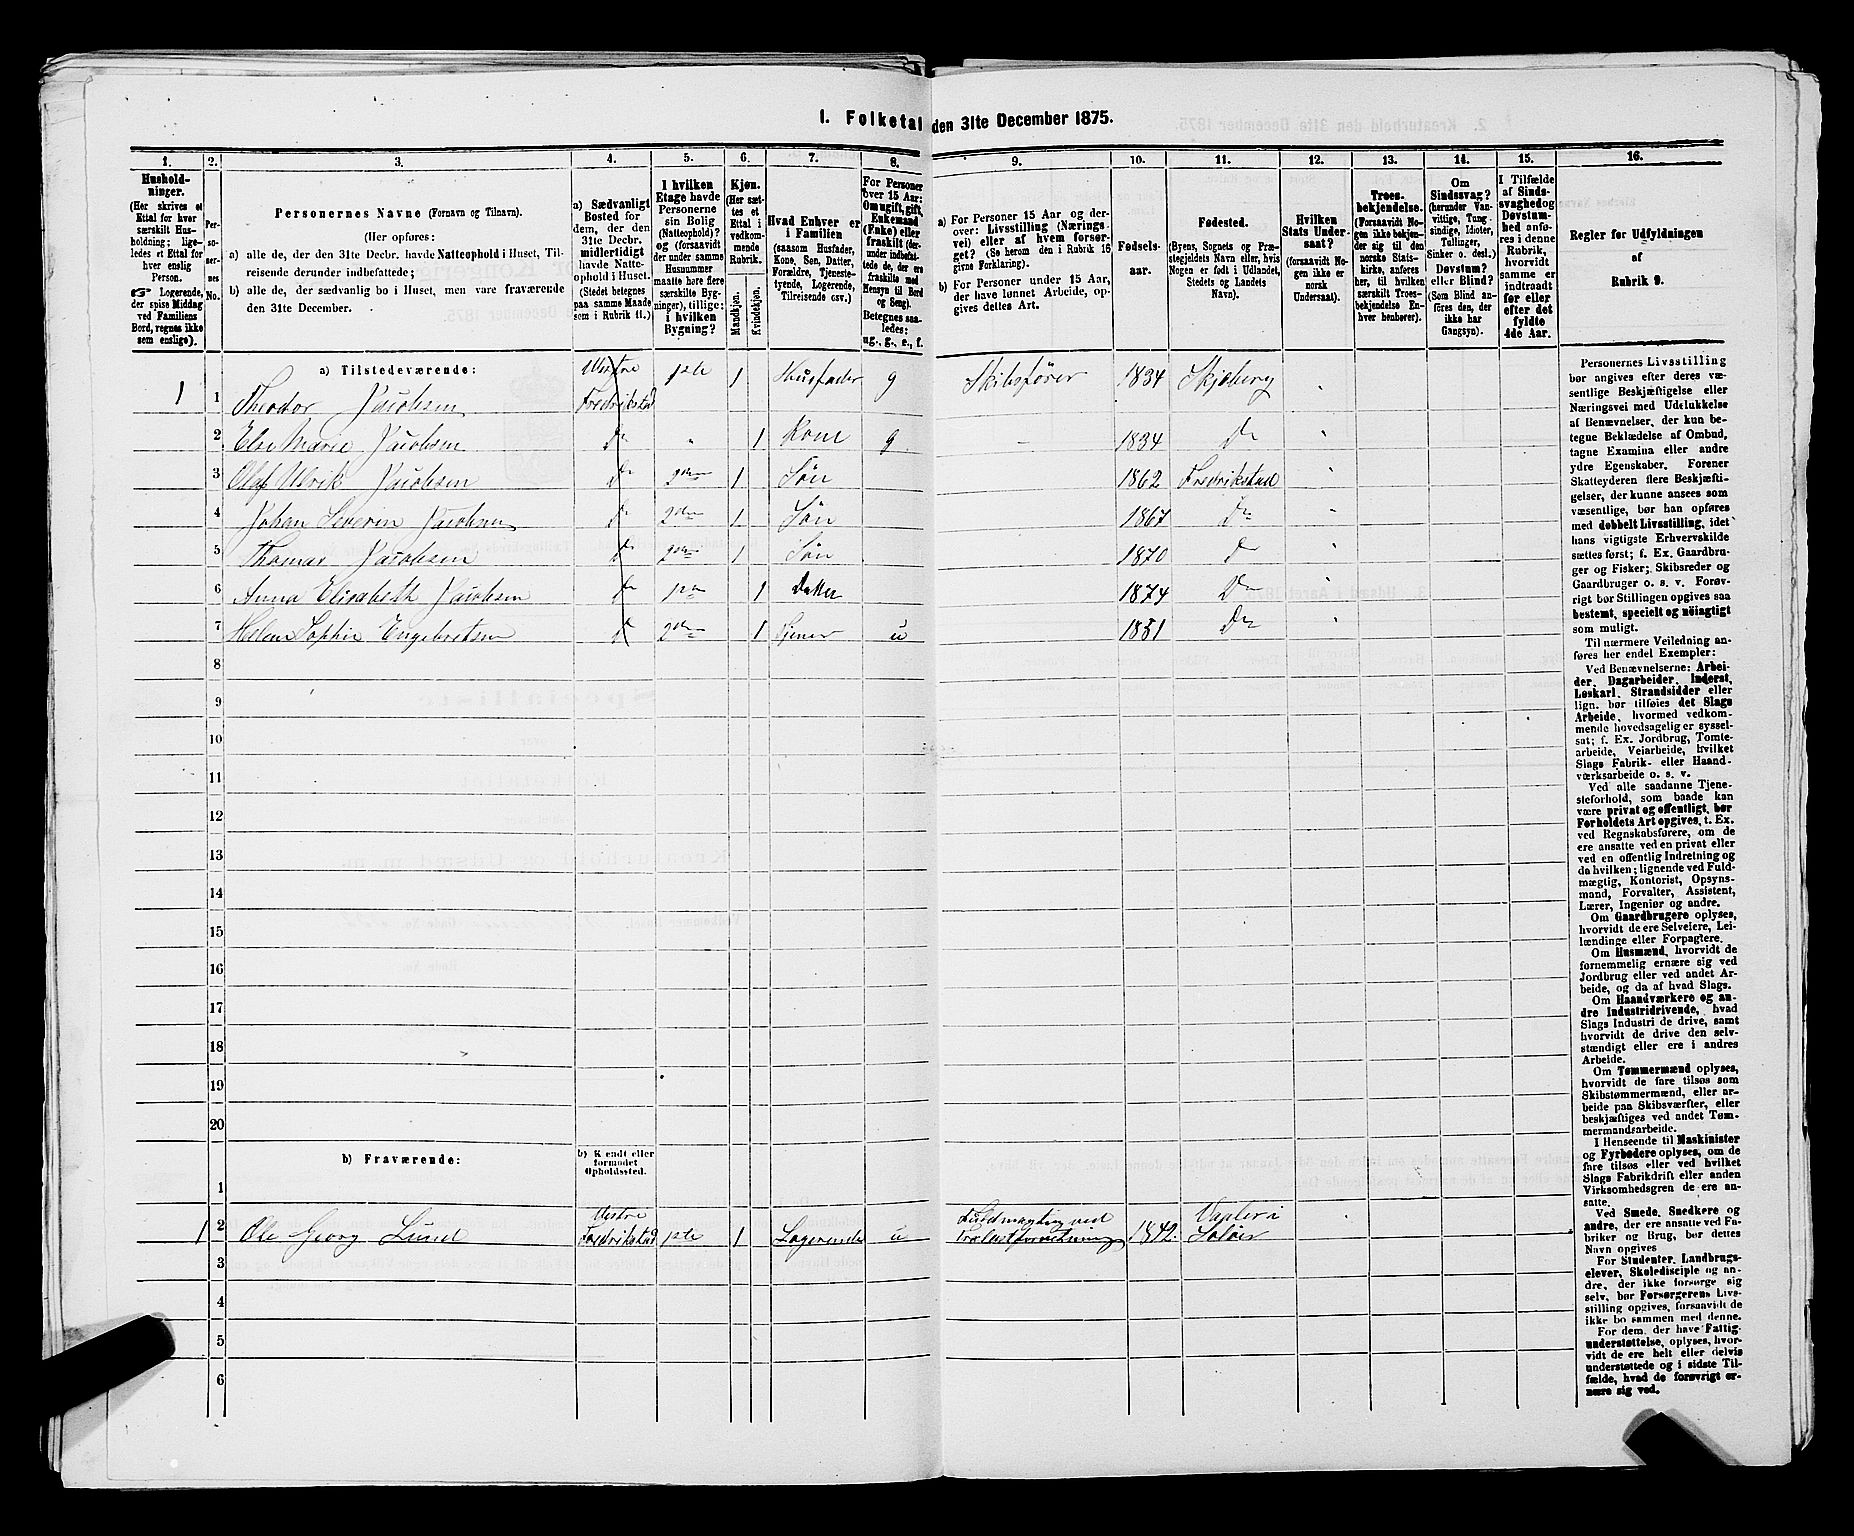 1. Folketal den 31te December 1875.
1. 2. 3. 4. 5. 6. 7. 8. 9. 10. 11. 12. 13. 14. 15. 16.
Hushold-
ninger.
(Her skrives et
Ettal for hver
særskilt Hus-
holdning; lige-
ledes et Ettal for
hver enslig
Person.
☞ Logerende,
der spise Middag
ved Familiens
Bord, regnes ikke
som enslige).
Per-
so-
ner-
nes
No.
Personernes Navne (Fornavn og Tilnavn).
(Her opføres:
a) alle de, der den 31te Decbr. havde Natteophold i Huset, Til-
reisende derunder indbefattede;
b) alle de, der sædvanlig bo i Huset, men vare fraværende
den 31te December.
a) Sædvanligt
Bosted for
dem, der den
31te Decbr.
midlertidigt
havde Natte-
ophold i Huset.
(Stedet betegnes
paa samme Maade
som i Rubrik 11.)
I hvilken
Etage havde
Personerne
sin Bolig
(Natteophold)?
og (forsaavidt
der under samme
Husnummer
maatte høre flere
særskilte Byg-
ninger), tillige:
i hvilken
Bygning?
Kjøn.
(Her sæt-
tes et
Ettal i
vedkom-
mende
Rubrik.
Mandkjøn.
Kvindekjøn.
Hvad Enhver er
i Familien
(saasom Husfader,
Kone, Søn, Datter,
Forældre, Tjeneste-
tyende, Logerende,
Tilreisende osv.)
For Personer
over 15 Aar:
Om ugift, gift,
Enkemand
(Enke) eller
fraskilt (der-
under indbefat-
tede de, der ere
fraskilte med
Hensyn til Bord
og Seng).
Betegnes saa-
ledes:
ug., g., e., f.
a) For Personer 15 Aar og der-
over: Livsstilling (Nærings-
vei) eller af hvem forsør-
get? (Se herom den i Rubrik 16
givne Forklaring).
b) For Personer under 15 Aar,
der have lønnet Arbeide, op-
gives dettes Art.
Fødsels-
aar.
Fødested.
(Byens, Sognets og Præ-
stegjeldets Navn eller, hvis
Nogen er født i Udlandet,
Stedets og Landets
Navn).
Hvilken
Stats Under-
saat?
(forsaavidt No-
gen ikke er
norsk
Undersaat).
Troes-
bekjendelse.
(Forsaavidt No-
gen ikke bekjen-
der sig til den
norske Stats-
kirke, anføres
her, til hvilken
særskilt Troes-
bekjendelse En-
hver henhører).
Om
Sindssvag?
(herunder Van-
vittige, Tung-
sindige, Idioter,
Tullinger,
Sinker o. desl.)
Døvstum?
eller Blind?
(Som Blind an-
føres den, der
ikke har
Gangsyn).
I Tilfælde
af Sinds-
svaghed og
Døvstum-
hed anfø-
res i denne
Rubrik,
hvorvidt
samme er
indtraadt
før eller
efter det
fyldte
4de Aar.
Regler for Udfyldningen
af
Rubrik 9.
a) Tilstedeværende:
1 1 Theodor Jacobsen Vestre Fredrikstad 1ste 1 Husfader g Skibsfører 1834 Skjeberg
2 Else Marie Jacobsen Do " 1 Kone g – 1834 Do
3 Olaf Ulrik Jacobsen Do 2den 1 Søn 1862 Fredrikstad
4 Johan Severin Jacobsen Do 2den 1 Søn 1867 Do
5 Thomas Jacobsen Do 2den 1 Søn 1870 Do
6 Anna Elisabeth Jacobsen Do 1 Datter 1874 Do
7 Helene Sophie Engebretsen Do 2den 1 Tjener u 1851 Do
8
9
10
11
12
13
14
15
16
17
18
19
20
b) Fraværende:
b) Kjendt eller
formodet
Opholdssted.
1
1 2 Ole Georg Lund Vestre Fredrikstad 1ste 1 Logerende u Fuldmægtig ved Trælastforretning 1842. Vaaler i Solør
3
4
5
6
Personernes Livsstilling
bør angives efter deres væ-
sentlige Beskjæftigelse eller
Næringsvei med Udelukkelse
af Benævnelser, der kun be-
tegne Beklædelse af Ombud,
tagne Examina eller andre
ydre Egenskaber. Forener
Skatteyderen flere Beskjæfti-
gelser, der kunne ansees som
væsentlige, bør han opføres
med dobbelt Livsstilling, idet
hans vigtigste Erhvervskilde
sættes først; f. Ex. Gaardbru-
ger og Fisker; Skibsreder og
Gaardbruger o. s. v. Forøv-
rigt bør Stillingen opgives saa
bestemt, specielt og nöiagtigt
som muligt.
Til nærmere Veiledning an-
føres her endel Exempler:
Ved Benævnelserne: Arbei-
der, Dagarbeider, Inderst,
Løskarl, Strandsidder eller
lign. bør tilføies det Slags
Arbeide, hvormed vedkom-
mende hovedsagelig er syssel-
sat; f. Ex. Jordbrug, Tomte-
arbeide, Veiarbeide, hvilket
Slags Fabrik- eller Haand-
værksarbeide o. s. v.
Ved alle saadanne Tjene-
steforhold, som baade kan
være privat og offentligt, bør
Forholdets Art opgives, t. Ex.
ved Regnskabsførere, om de
ere ansatte ved en privat eller
ved en offentlig Indretning og
da hvilken; lignende ved Fuld-
mægtig, Kontorist, Opsyns-
mand, Forvalter, Assistent,
Lærer, Ingeniør og andre.
Om Gaardbrugere oplyses,
hvorvidt de ere Selveiere, Lei-
lændinge eller Forpagtere.
Om Husmænd, hvorvidt de
fornemmelig ernære sig ved
Jordbrug eller ved andet Ar-
beide, og da af hvad Slags.
Om Haandværkere og an-
dre Industridrivende, hvad
Slags Industri de drive, samt
hvorvidt de drive den selv-
stændigt eller ere i andres
Arbeide.
Om Tømmermænd oplyses,
hvorvidt de fare tilsøs som
Skibstømmermænd, eller ar-
beide paa Skibsværfter, eller
beskjæftiges ved andet Tøm-
mermandsarbeide.
I Henseende til Maskinister
og Fyrbødere oplyses, om de
fare tilsøs eller ved hvilket
Slags Fabrikdrift eller anden
Virksomhedsgren de ere an-
satte.
Ved Smede, Snedkere og
andre, der ere ansatte ved Fa-
briker og Brug, bør dettes
Navn opgives
For Studenter, Landbrugs-
elever, Skoledisciple og an-
dre, der ikke forsørge sig
selv, bør Forsørgerens Livs-
stilling opgives, forsaavidt de
ikke bo sammen med denne.
For dem, der have Fattig-
understøttelse, oplyses, hvor-
vidt de ere helt eller delvis
understøttede og i sidste Til-
fælde, hvad de forøvrigt er-
nære sig ved.